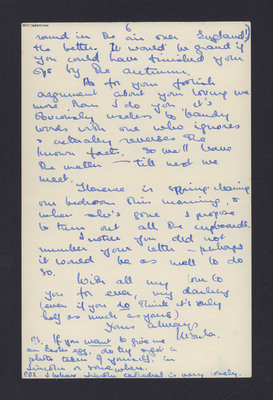 6
round in the air over England!)
the better. It would be grand if
you could have finished your
ops by the autumn.
As for your foolish
argument about your loving me
more than I do you it's
obviously useless to bandy
words with one who ignores
& actually reverses the
known facts. So we'll leave
the matter — till next we
meet.
Florence is spring cleaning
our bedroom this morning, &
when she's gone I propose
to turn out all the cupboards.
I notice you did not
number your letter — perhaps
it would be as well to do
so.
With all my love to
you for ever, my darling
(even if you do think it's only
half as much as yours)
Yours always
P.S. If you want to give me
an Easter egg, do try & get a
photo taken of yourself in
Lincoln or somewhere.
PPS. I believe Lincoln cathedral is very lovely.